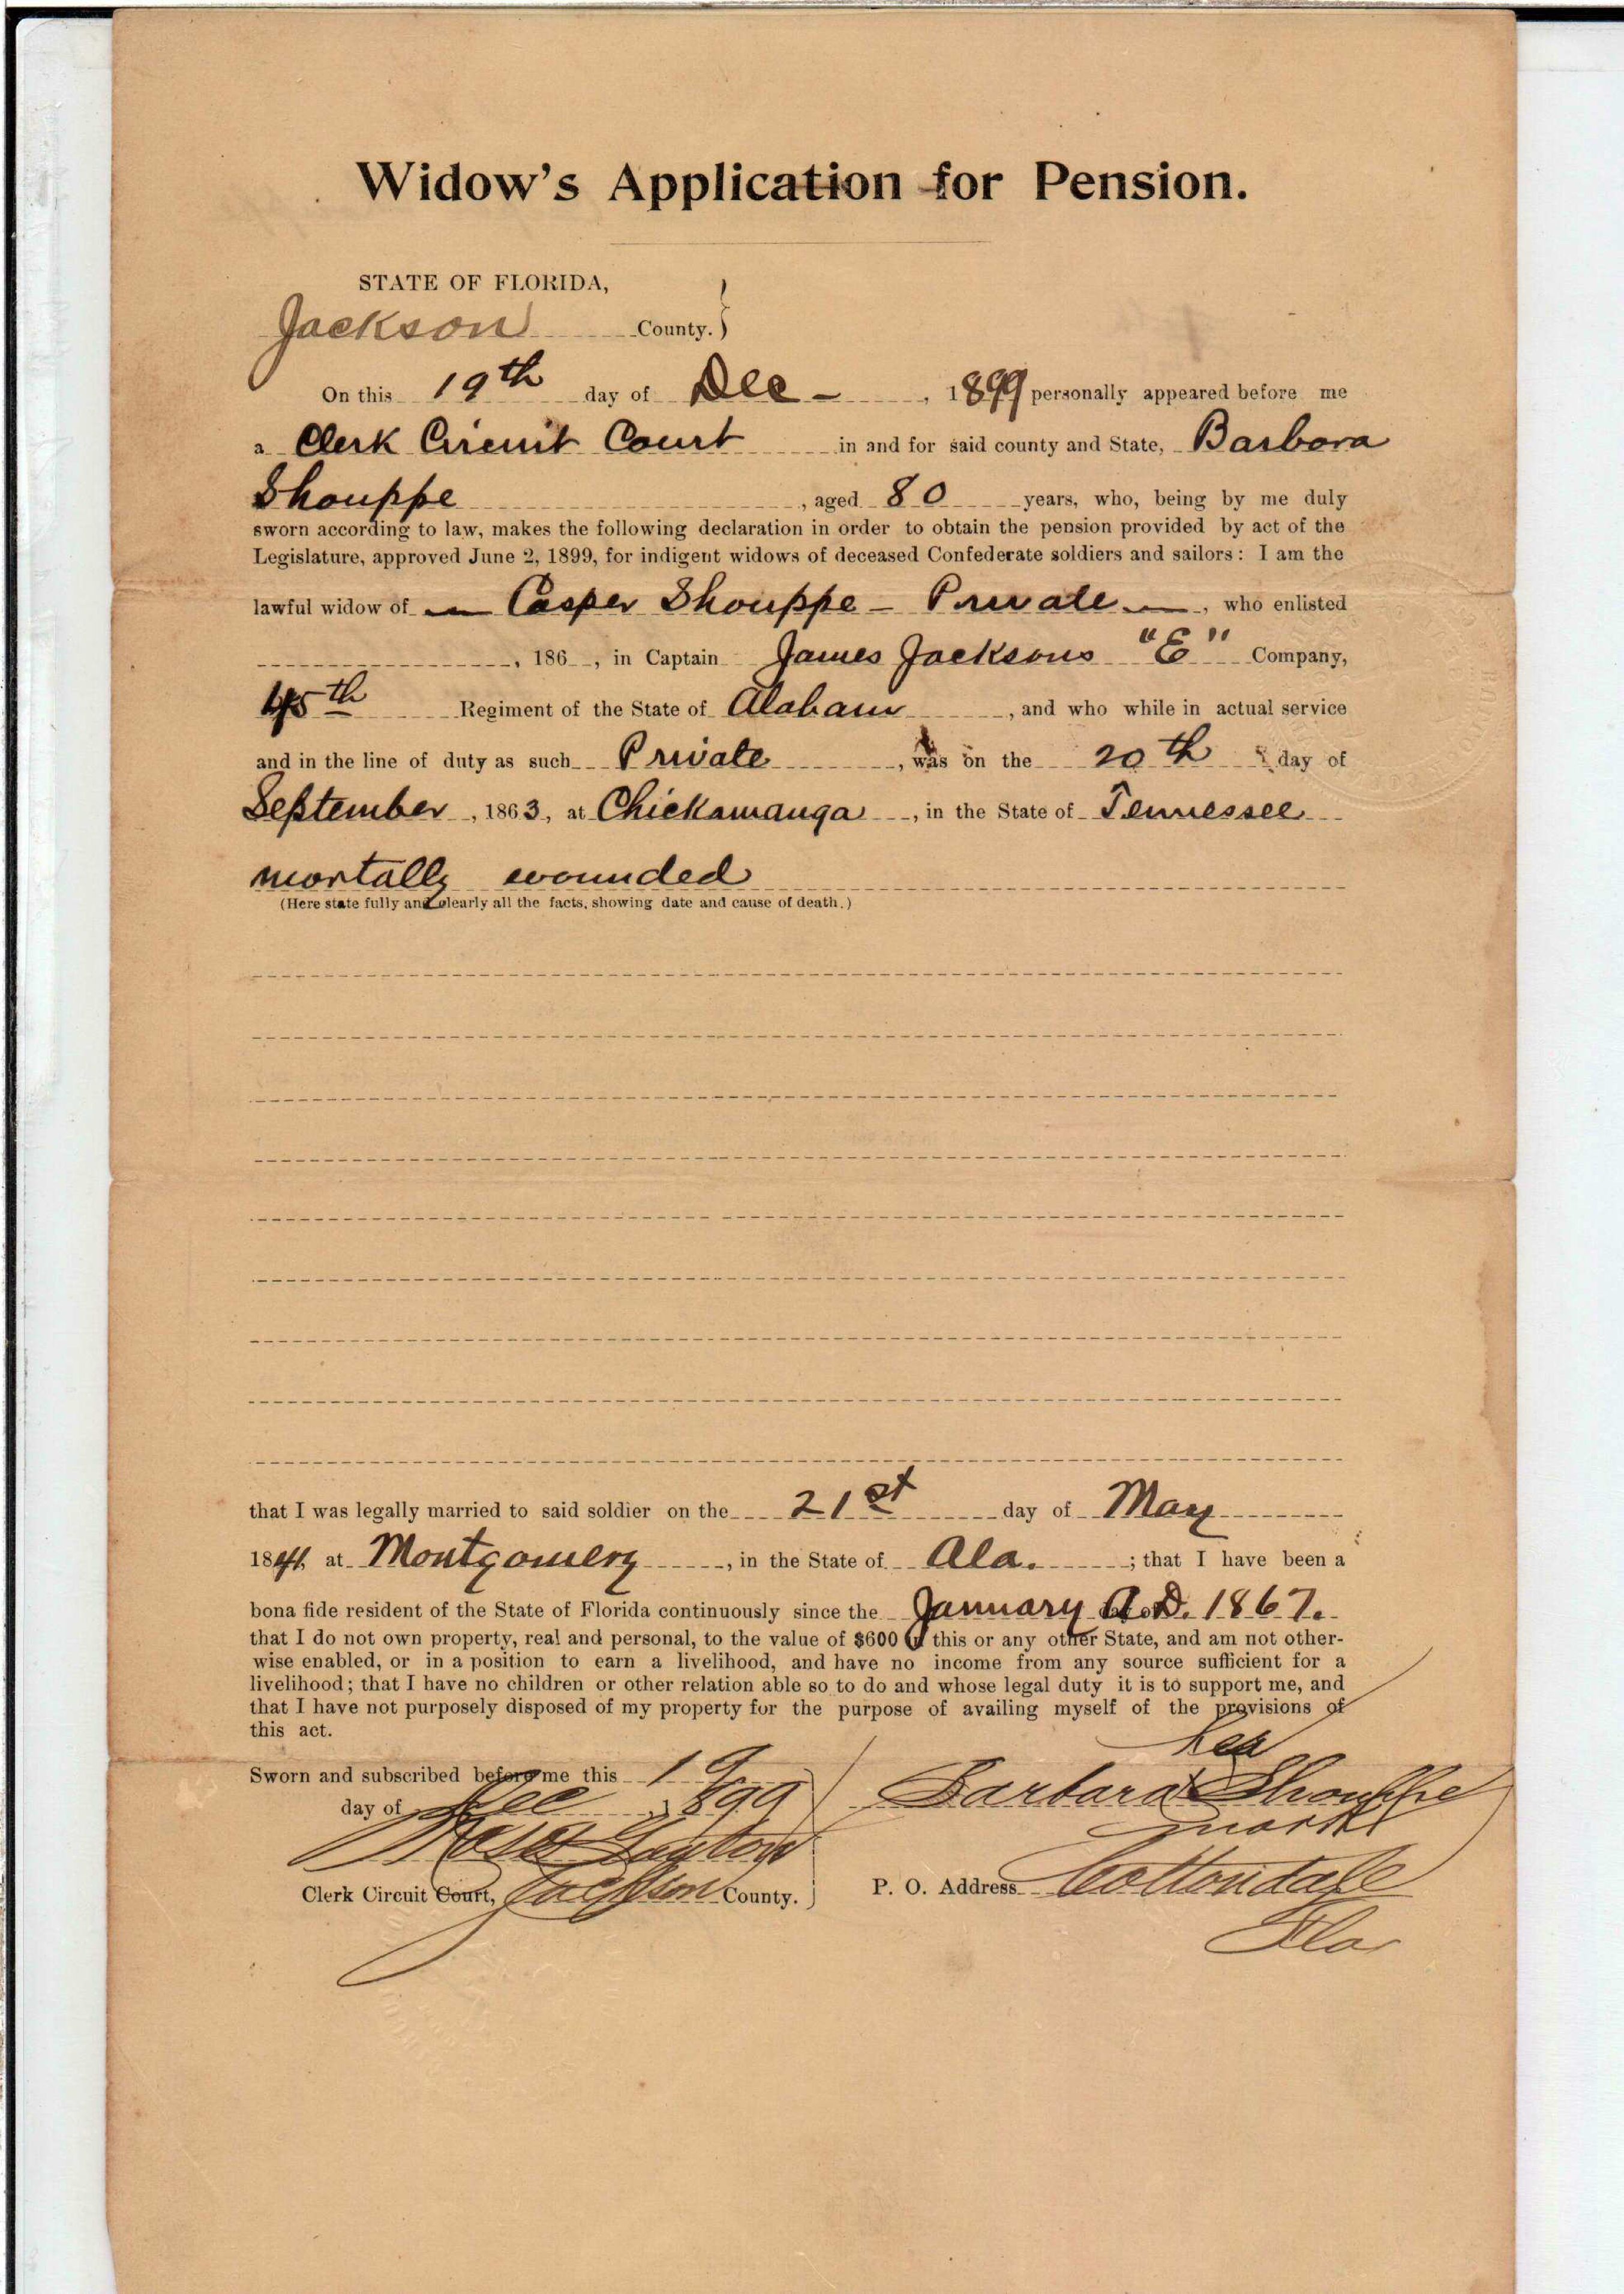 Widow's Application for Pension.
STATE OF FLORIDA,
Jackson County.
On this 19th day of Dec - , 1899 personally appeared before me
a Clerk Circuit Court in and for said county and State, Barbara
Shouppe , aged 80 years, who, being by me duly
sworn according to law, makes the following declaration in order to obtain the pension provided by act of the
Legislature, approved June 2, 1899, for indigent widows of deceased Confederate soldiers and sailors: I am the
lawful widow of — Casper Shouppe - Private — , who enlisted
, 186 , in Captain James Jacksons "E" Company,
45th Regiment of the State of Alabam , and who while in actual service
and in the line of duty as such Private , was on the 20th day of
September , 1863, at Chickamauga , in the State of Tennessee
mortally wounded
(Here state fully and clearly all the facts, showing date and cause of death.)
that I was legally married to said soldier on the 21st day of May
1841 at Montgomery , in the State of Ala. ; that I have been a
bona fide resident of the State of Florida continuously since the January A.D. 1867.
that I do not own property, real and personal, to the value of $600 in this or any other State, and am not other-
wise enabled, or in a position to earn a livelihood, and have no income from any source sufficient for a
livelihood; that I have no children or other relation able so to do and whose legal duty it is to support me, and
that I have not purposely disposed of my property for the purpose of availing myself of the provisions of
this act.
Sworn and subscribed before me this 19
day of Dec 1899
Clerk Circuit Court, Jackson County.
her
Barbara X Shouppe
mark
P. O. Address Cottondale
Fla